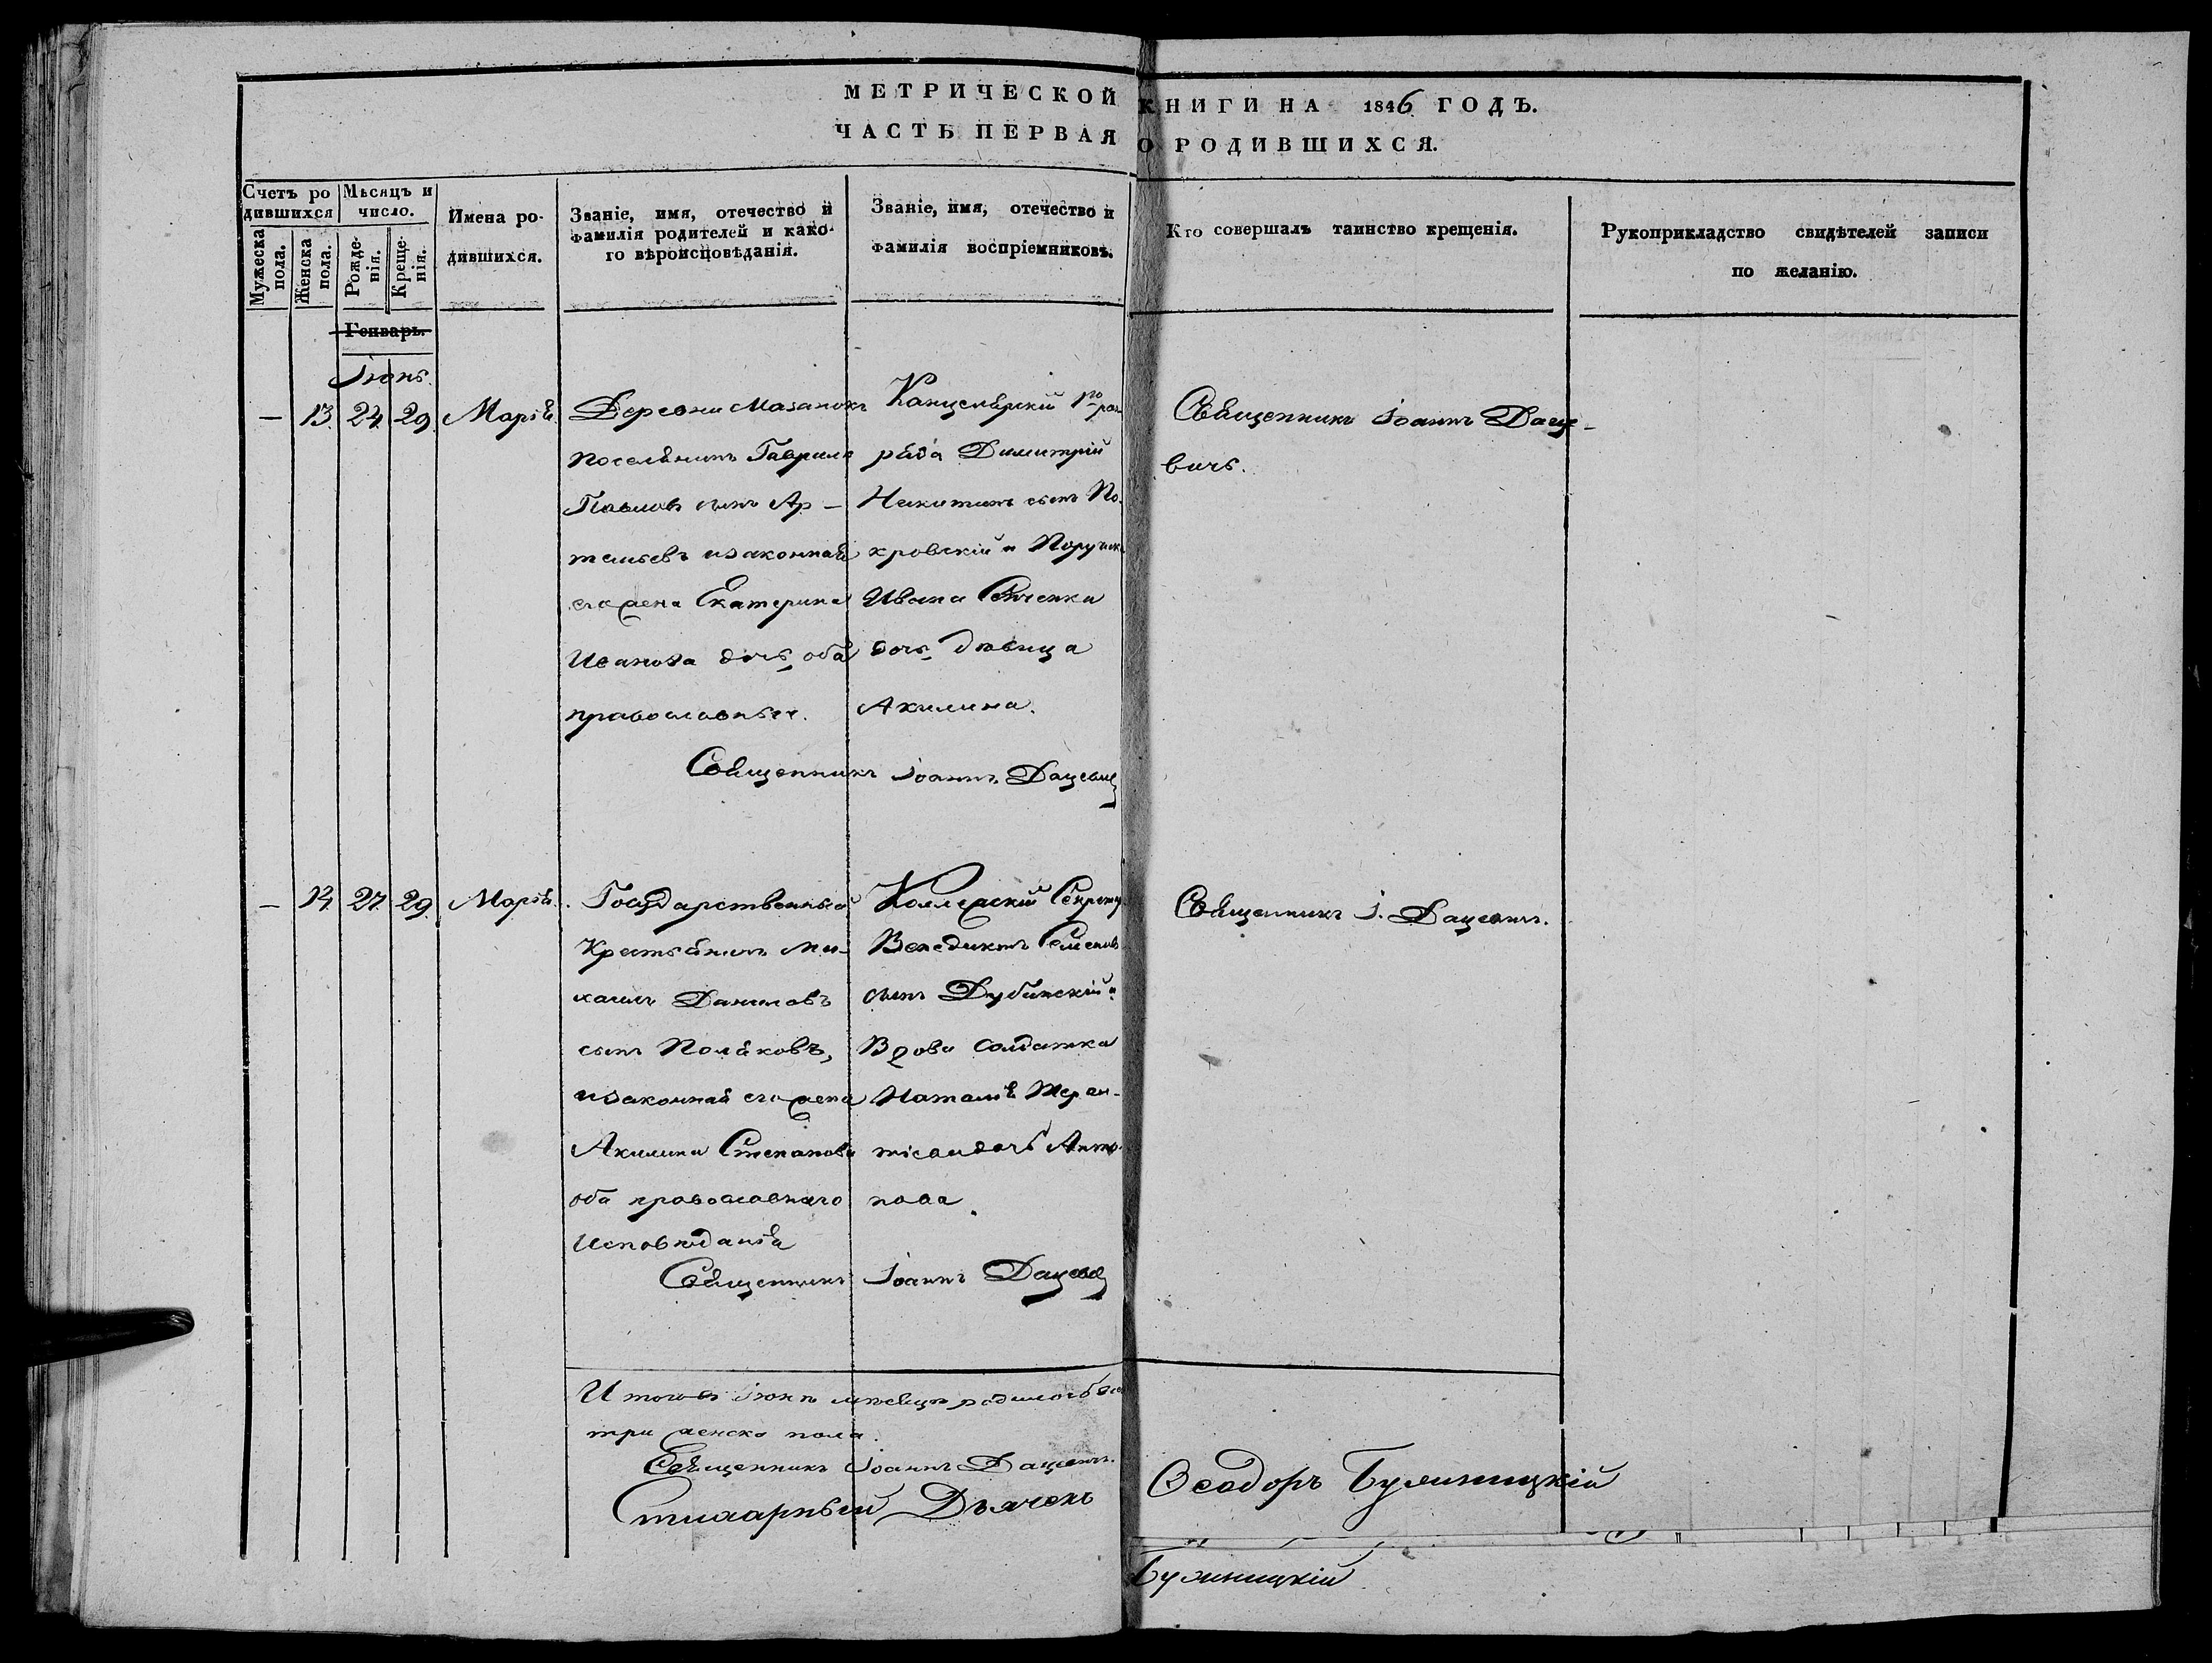 МЕТРИЧЕСКОЙ КНИГИ НА 1846 ГОДЪ.
ЧАСТЬ ПЕРВАЯ О РОДИВШИХСЯ.
Счетъ ро
дившихся
Мужеска
пола.
Женска
пола.
Мѣсяцъ и
число.
Рожде-
нія.
Креще-
нія.
Имена ро-
дившихся.
Званіе, имя, отечество и
фамилія родителей и како-
го вѣроисповѣданія.
Званіе, имя, отечество и
фамилія воспріемниковъ.
Кто совершалъ таинство крещенія.
Рукоприкладство свидѣтелей записи
по желанію.
Генварь.
Іюнь.
— 13. 24. 29. Марія.
Деревни Мазанокъ
поселянинъ Гаврилъ
Павловъ сынъ Ар-
темьевъ изаконная
его жена Екатерина
Иванова дочь, оба
православные.
Канцелярскій 1го раз-
ряда Димитрій
Никитинъ сынъ По-
кровскій и Поручика
Ивана Сенченка
дочь девица
Акилина.
Священникъ Іоаннъ Даце-
вичъ.
Священникъ Іоаннъ Дацевичъ
— 14. 27. 29. Марія.
Государственный
Крестьянинъ Ми-
хаилъ Даниловъ
сынъ Поляковъ,
изаконная его жена
Акилина Степанова
оба православнаго
исповѣданія
Коллежскій Секретарь
Венедиктъ Семеновъ
сынъ Дубинскій и
Вдова солдатка
Наталія Терен-
тіева дочь Анто-
нова.
Священникъ І. Дацевичъ.
Священникъ Іоаннъ Дацевичъ
Итого въ Іюнѣ месяцѣ родилось
три женска пола.
Священникъ Іоаннъ Дацевичъ.
Стихарный Дьячекъ Ѳеодоръ Булиницкій
Булиницкій